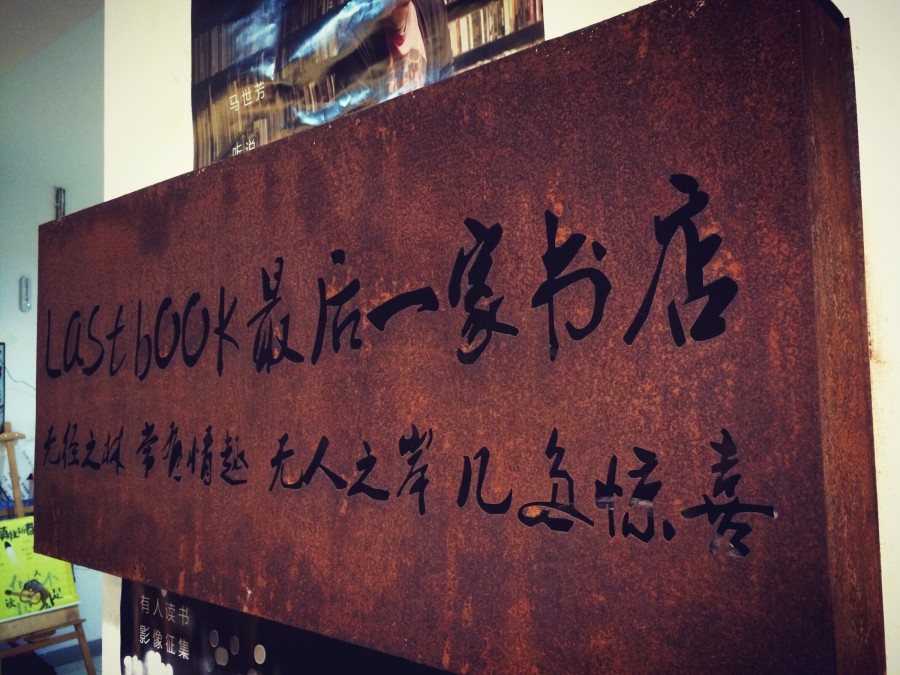 马世芳
听说
Last book 最后一家书店
无径之林 常有情趣 无人之岸 几多惊喜
有人读书
影像征集